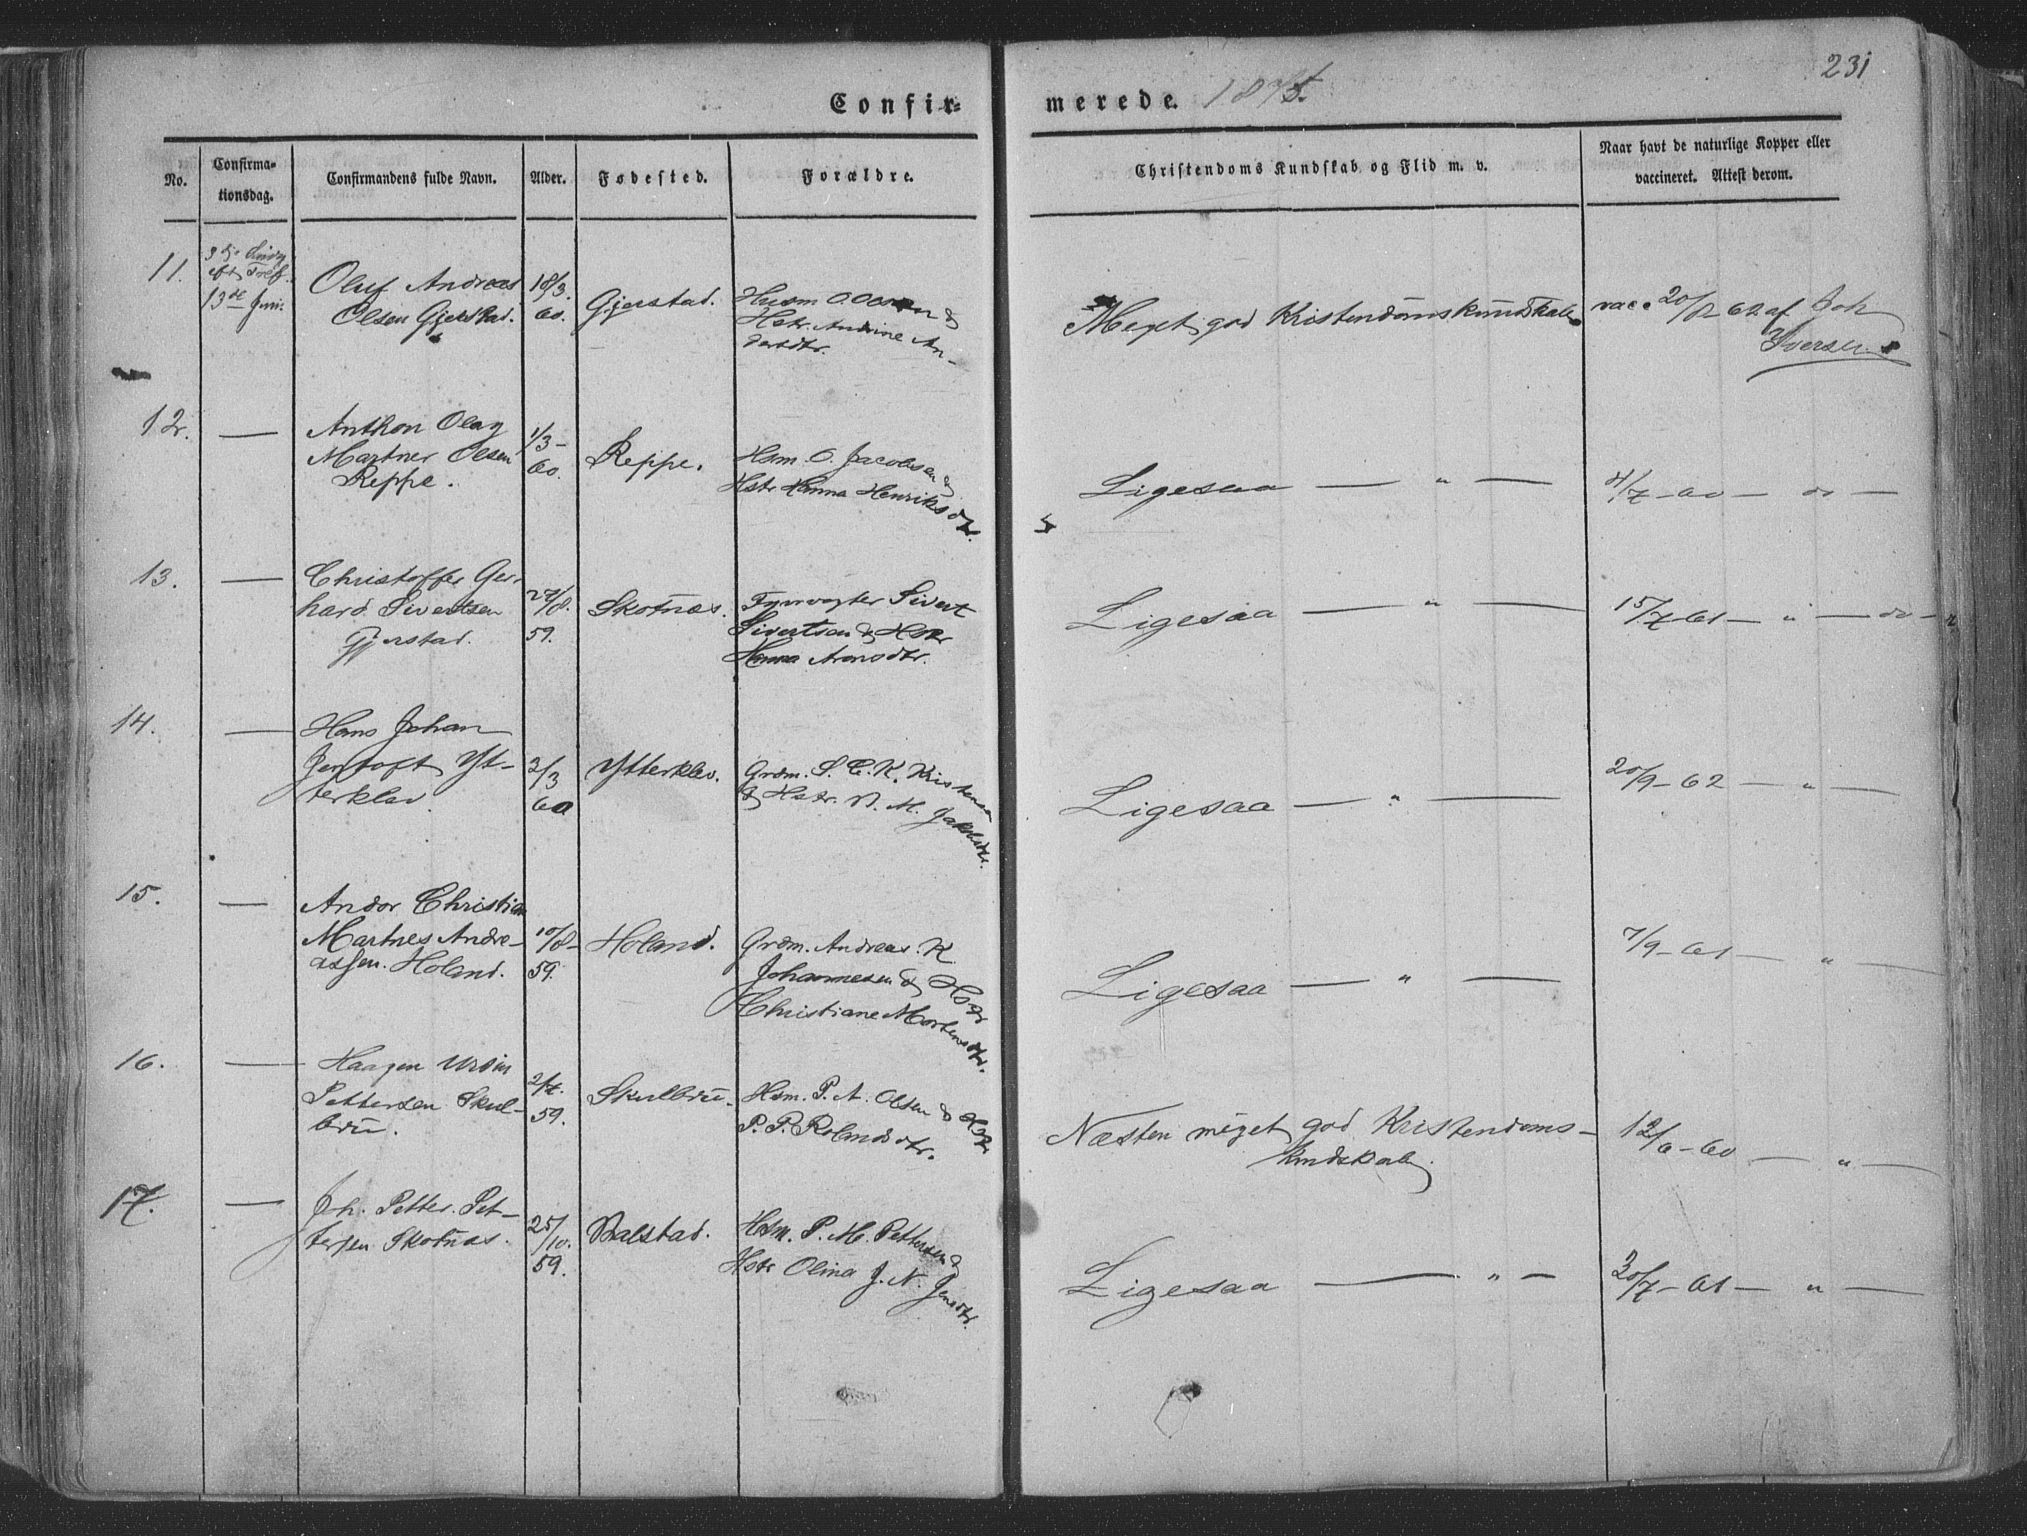 231
Confir-
merede. 1875.
No.
Confirma-
tionsdag.
Confirmandens fulde Navn.
Alder.
Fødested.
Forældre.
Christendoms Kundskab og Flid m. v.
Naar havt de naturlige Kopper eller
vaccineret. Attest derom.
11.
eft. Tref.
13de Juni.
Oluf Andreas
Olsen Gjerstad.
18/3.
60.
Gjerstad.
Husm. O. &
Hstr. Andrine An-
dersdtr.
Meget god Kristendomskundskab
vacc. 20/ 62 af Joh
Iversen
12.
—
Anthon Olag
Martner Olsen
Reppe.
1/3-
60.
Reppe.
Hsm. O. Jacobsen &
Hstr Hanna Henriksdtr.
Ligesaa — " —
4/7-60 — do —
13.
—
Christoffer Ger-
hard Sivertsen
Gjerstad.
27/8.
59.
Skotnæs.
Fyrvogter Sivert
Sivertsen & Hstr
Hanna Arnsdtr.
Ligesaa — " —
15/7 61 — " — do —
14.
—
Hans Johan
Jentoft Yt-
terklev.
2/3
60
Ytterklev.
Grdm. S. C. K. Kristensen
& Hstr. M. Jakobsdtr.
Ligesaa — " —
20/9-62 — " —
15.
—
Andor Christian
Martnes Andre-
assen. Holand.
10/8-
59.
Holand.
Grdm. Andreas. K
Johannesen & Hstr
Christiane Mortensdtr.
Ligesaa — " —
7/9-61 — " —
16.
—
Haagen Ursin
Pettersen Skul-
bru.
2/7.
59.
Skulbru.
Hsm. P. A. Olsen & Hstr
P. P. Rolandsdtr.
Næsten meget god Kristendoms-
kundskab.
12/6-60 — " —
17.
—
Joh. Petter. Pet-
tersen Skotnæs.
25/10.
59.
Balstad.
Hsm. P. M. Pettersen &
Hstr Olina J. N. Jensdtr.
Ligesaa — " —
30/7-61 — " —